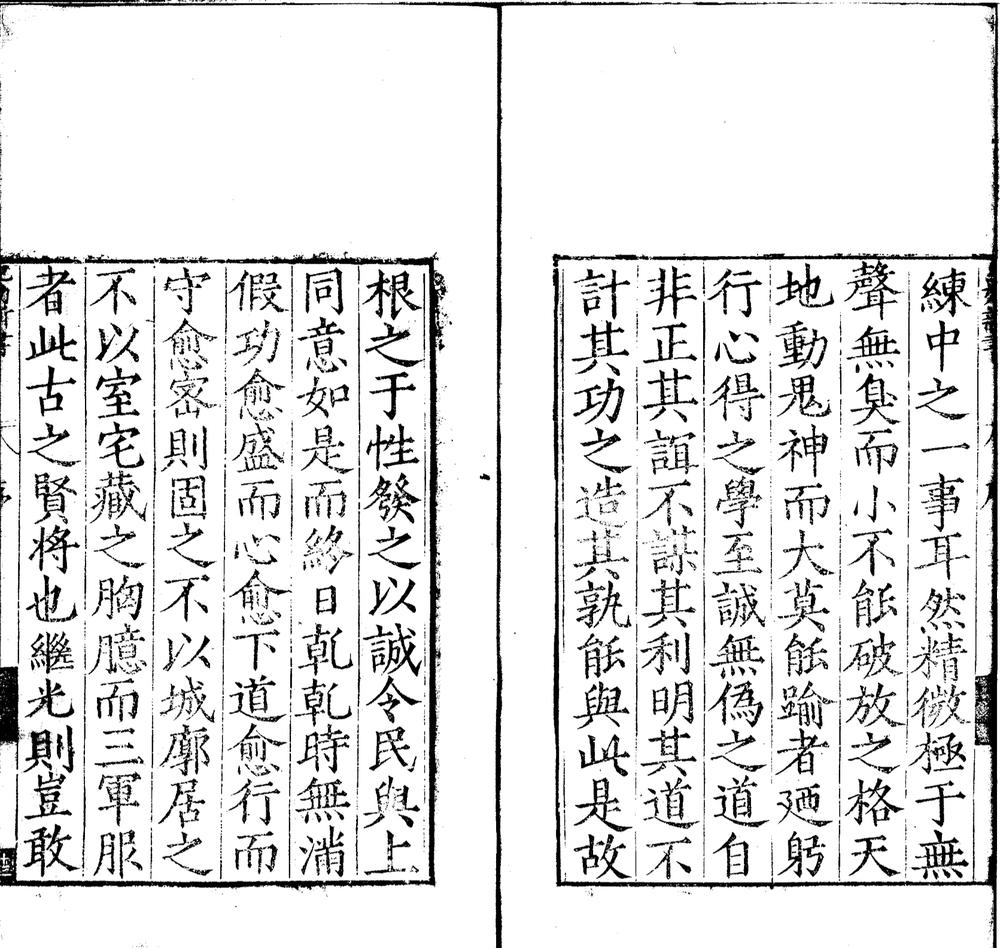 練中之一事耳然精微極于無
聲無臭而小不能破放之格天
地動鬼神而大莫能踰者廼躬
行心得之學至誠無偽之道自
非正其誼不謀其利明其道不
計其功之造其孰能與此是故
根之于性發之以誠令民與上
同意如是而終日乾乾時無滿
假功愈盛而心愈下道愈行而
守愈密則固之不以城廓居之
不以室宅藏之胸臆而三軍服
者此古之賢将也繼光則豈敢